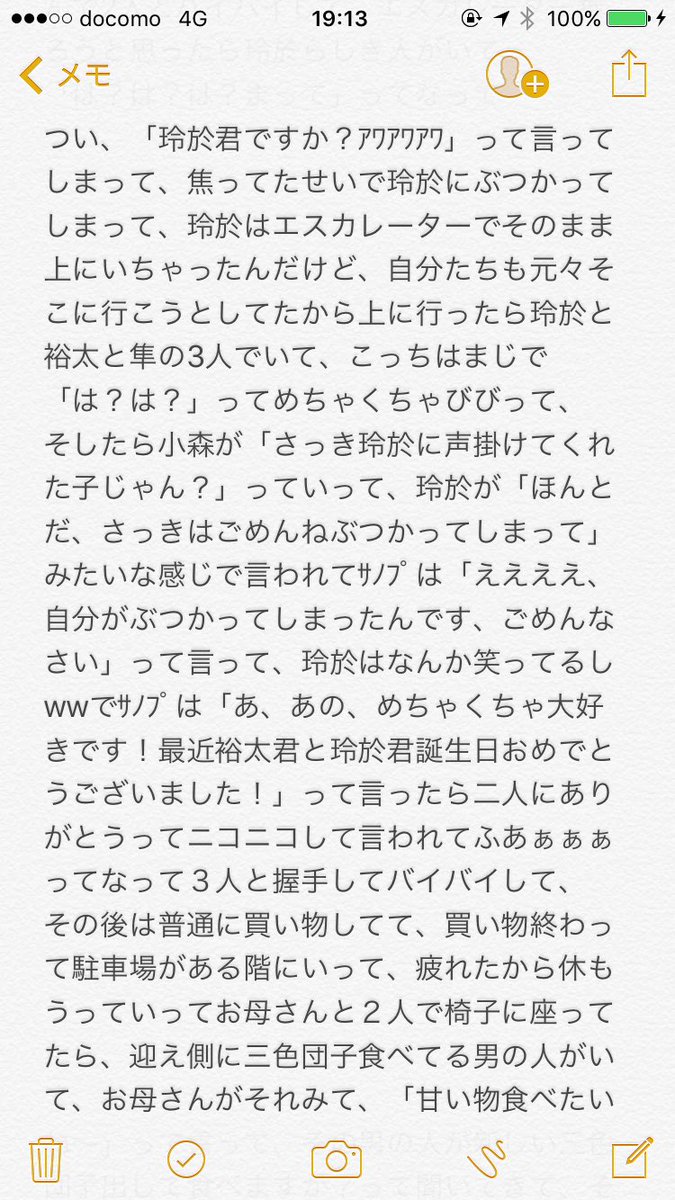 docomo 4G 19:13 100%
メモ
つい、「玲於君ですか？ｱﾜｱﾜｱﾜ」って言って
しまって、焦ってたせいで玲於にぶつかって
しまって、玲於はエスカレーターでそのまま
上にいちゃったんだけど、自分たちも元々そ
こに行こうとしてたから上に行ったら玲於と
裕太と隼の3人でいて、こっちはまじで
「は？は？」ってめちゃくちゃびびって、
そしたら小森が「さっき玲於に声掛けてくれ
た子じゃん？」っていって、玲於が「ほんと
だ、さっきはごめんねぶつかってしまって」
みたいな感じで言われてｻﾉﾌﾟは「ええええ、
自分がぶつかってしまったんです、ごめんな
さい」って言って、玲於はなんか笑ってるし
wwでｻﾉﾌﾟは「あ、あの、めちゃくちゃ大好
きです！最近裕太君と玲於君誕生日おめでと
うございました！」って言ったら二人にあり
がとうってニコニコして言われてふあぁぁぁ
ってなって３人と握手してバイバイして、
その後は普通に買い物してて、買い物終わっ
て駐車場がある階にいって、疲れたから休も
うっていってお母さんと２人で椅子に座って
たら、迎え側に三色団子食べてる男の人がい
て、お母さんがそれみて、「甘い物食べたい